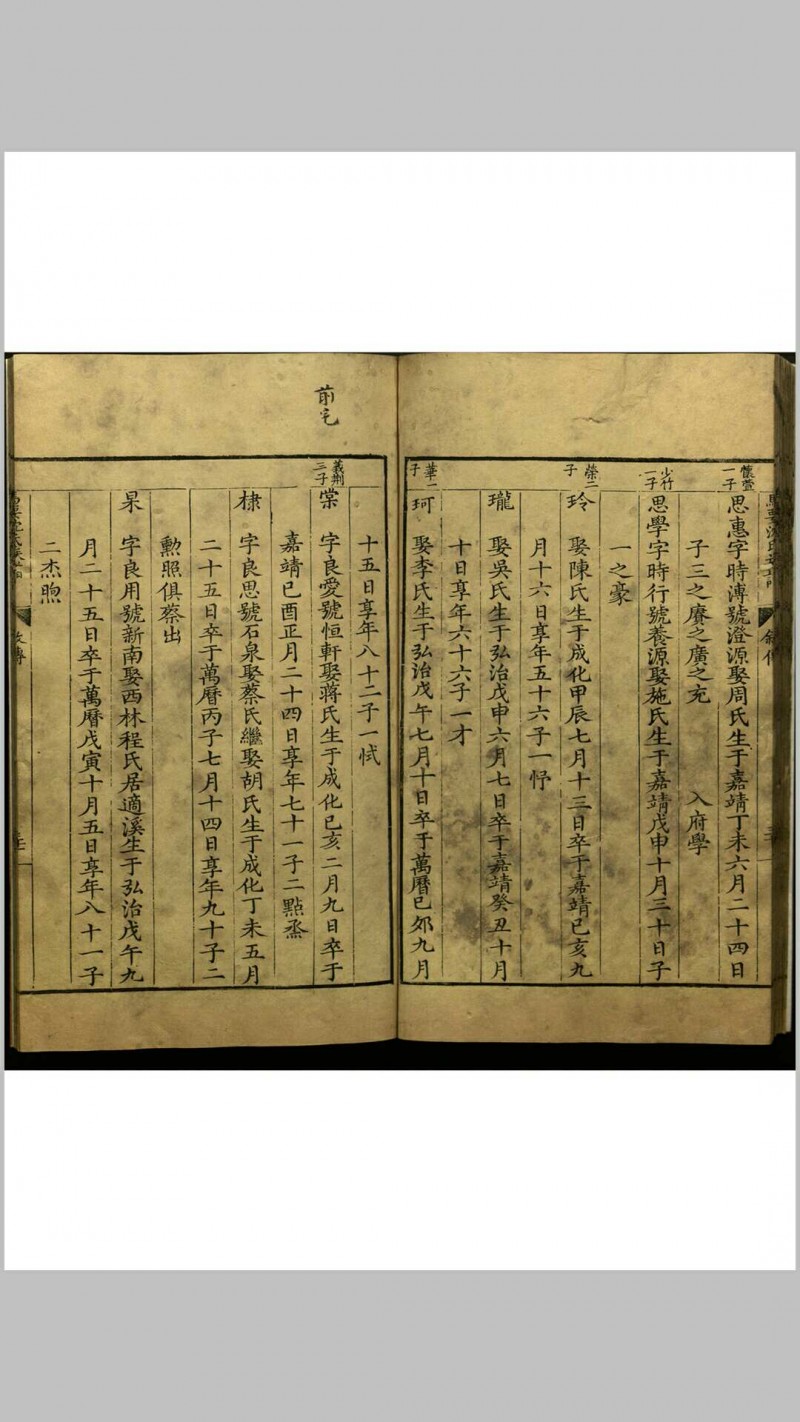 懷萱一子
思惠字時溥號澄源娶周氏生于嘉靖丁未六月二十四日
子三之賡之廣之充 入府學
少竹一子
思學字時行號養源娶施氏生于嘉靖戊申十月三十日子
一之豪
榮二子
玲 娶陳氏生于成化甲辰七月十三日卒于嘉靖己亥九
月十六日享年五十六子一忬
瓏 娶吳氏生于弘治戊申六月七日卒于嘉靖癸丑十月
十日享年六十六子一才
華二子
珂 娶李氏生于弘治戊午七月十日卒于萬曆己卯九月
十五日享年八十二子一恜
前宅
義荆三子
棠 字良愛號恒軒娶蔣氏生于成化己亥二月九日卒于
嘉靖己酉正月二十四日享年七十一子二點烝
棣 字良思號石泉娶蔡氏繼娶胡氏生于成化丁未五月
二十五日卒于萬曆丙子七月十四日享年九十子二
勲照俱蔡出
杲 字良用號新南娶西林程氏居適溪生于弘治戊午九
月二十五日卒于萬曆戊寅十月五日享年八十一子
二杰煦